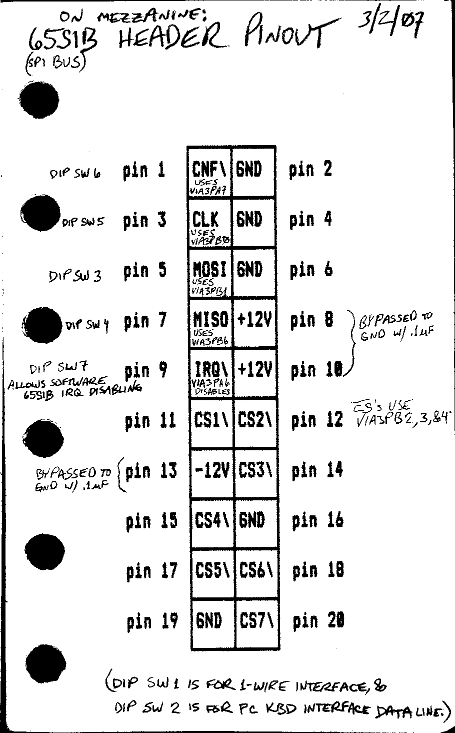 ON MEZZANINE:
65SIB HEADER PINOUT 3/2/07
(SPI BUS)
DIP SW 6 pin 1 CNF\ GND pin 2
USES
VIA3PA7
DIP SW 5 pin 3 CLK GND pin 4
USES
VIA3PB0
DIP SW 3 pin 5 MOSI GND pin 6
USES
VIA3PB1
DIP SW 4 pin 7 MISO +12V pin 8 BYPASSED TO
USES GND W/ .1µF
VIA3PB6
DIP SW 7 pin 9 IRQ\ +12V pin 10
ALLOWS SOFTWARE VIA3PA6
65SIB IRQ DISABLING DISABLES
pin 11 CS1\ CS2\ pin 12 CS's USE
VIA3PB2,3,&4
BYPASSED TO pin 13 -12V CS3\ pin 14
GND W/ .1µF
pin 15 CS4\ GND pin 16
pin 17 CS5\ CS6\ pin 18
pin 19 GND CS7\ pin 20
(DIP SW 1 IS FOR 1-WIRE INTERFACE, &
DIP SW 2 IS FOR PC KBD INTERFACE DATA LINE.)